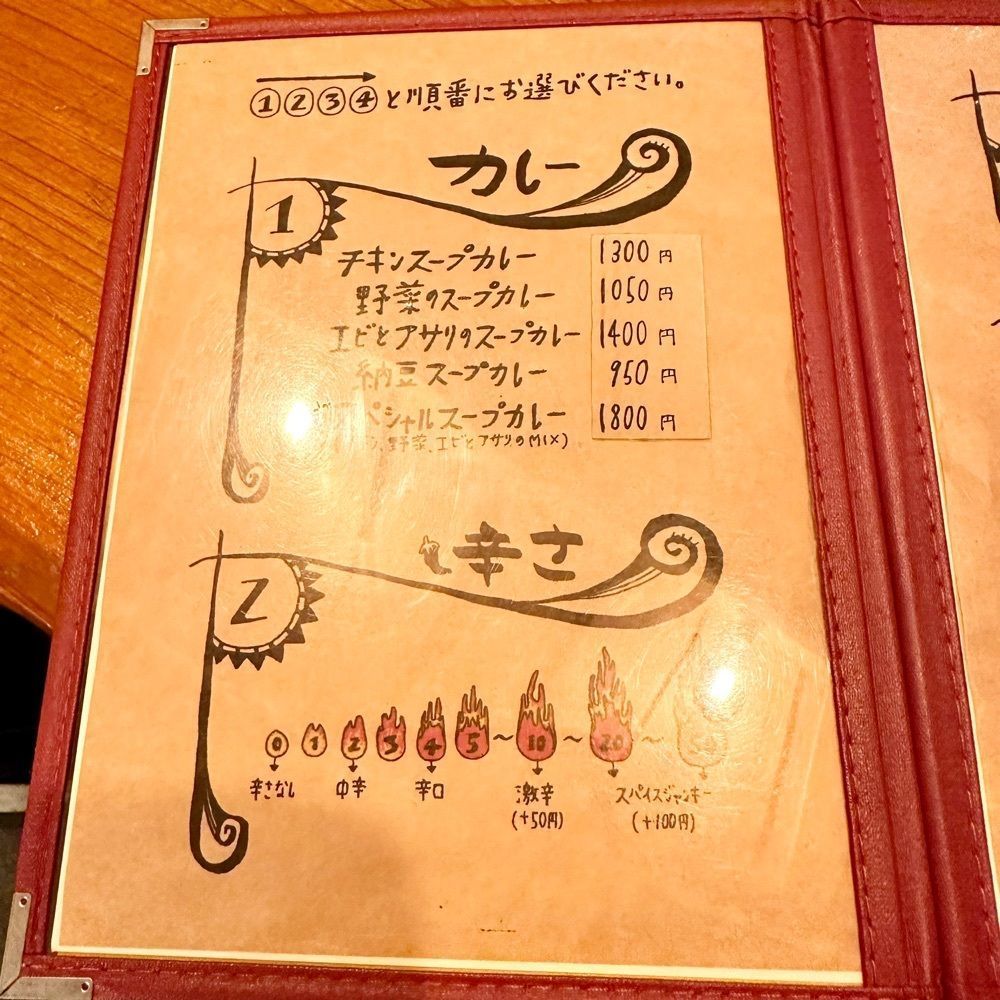 ①②③④と順番にお選びください。
1 カレー
チキンスープカレー 1300円
野菜のスープカレー 1050円
エビとアサリのスープカレー 1400円
納豆スープカレー 950円
スペシャルスープカレー 1800円
、野菜、エビとアサリのMIX)
2 辛さ
0 1 2 3 4 5 ~ 10 ~ 20 ~
辛さなし 中辛 辛口 激辛 スパイスジャンキー
(+50円) (+100円)